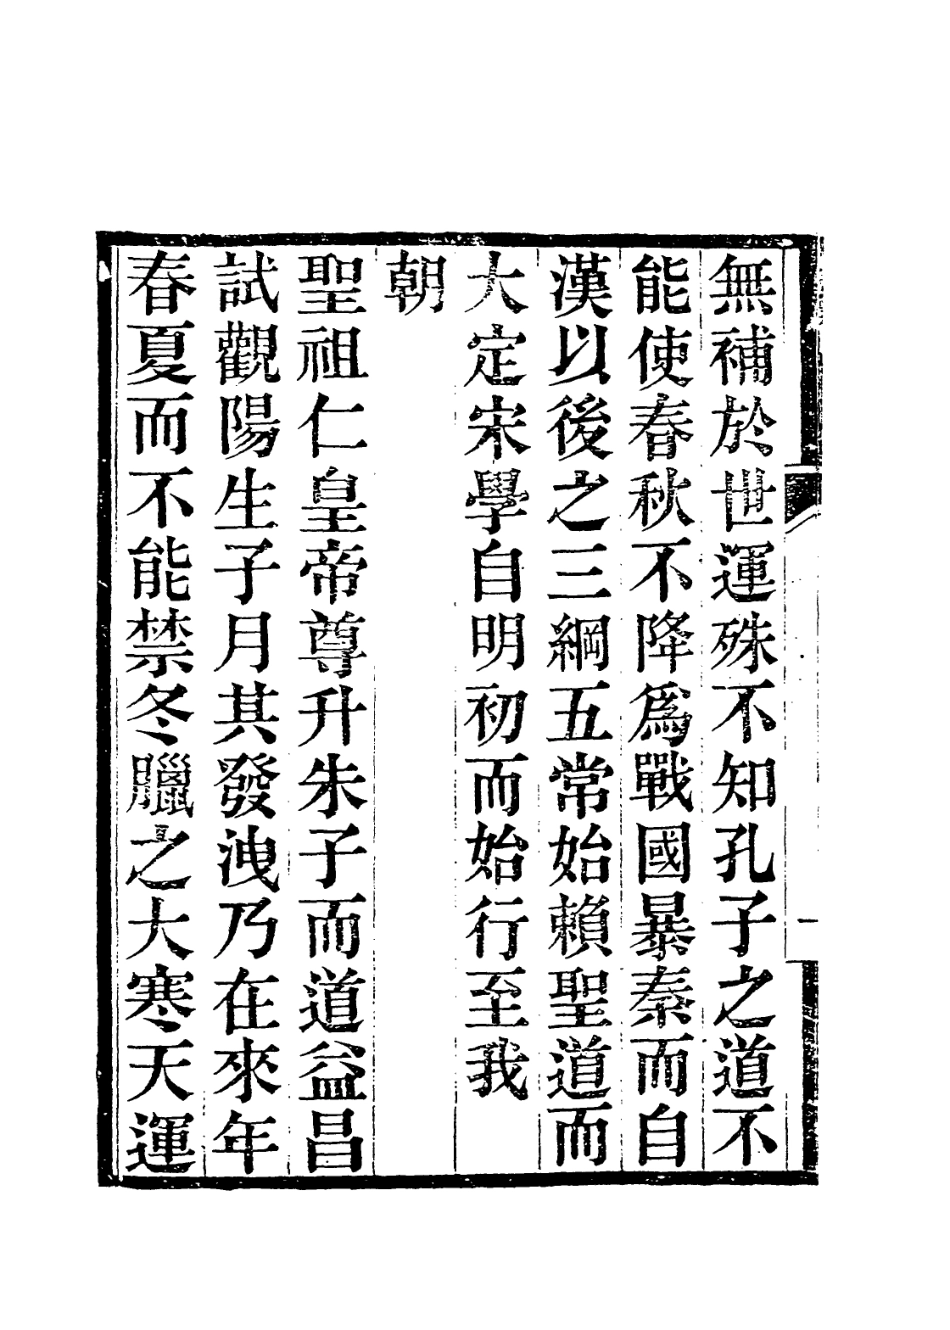 無補於世運殊不知孔子之道不
能使春秋不降爲戰國暴秦而自
漢以後之三綱五常始賴聖道而
大定宋學自明初而始行至我
朝
聖祖仁皇帝尊升朱子而道益昌
試觀陽生子月其發洩乃在來年
春夏而不能禁冬臘之大寒天運
一